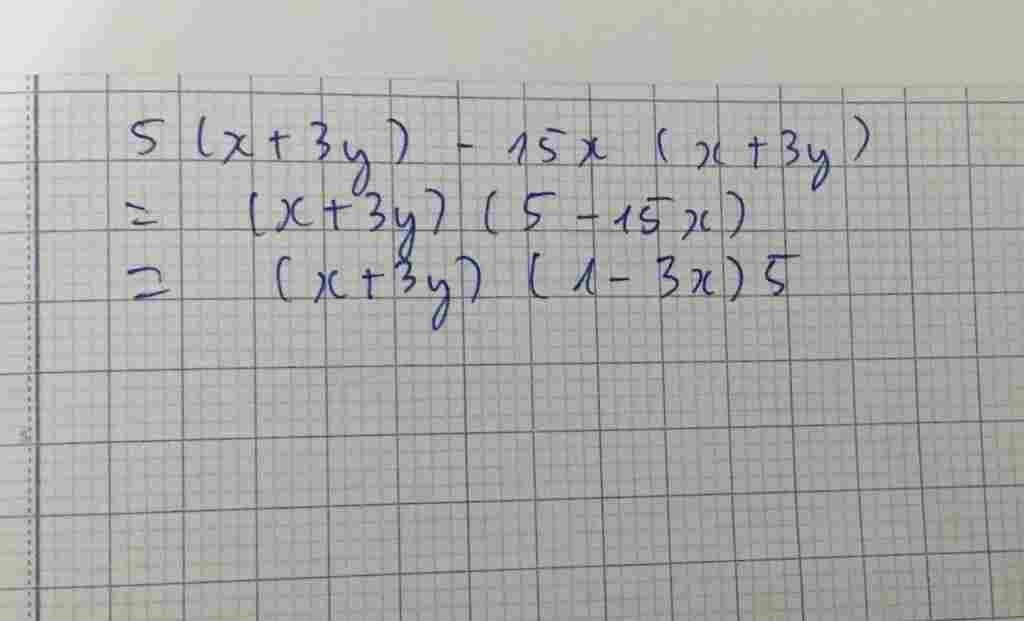 5 (x + 3y) - 15x (x + 3y)
= (x + 3y) (5 - 15x)
= (x + 3y) (1 - 3x) 5